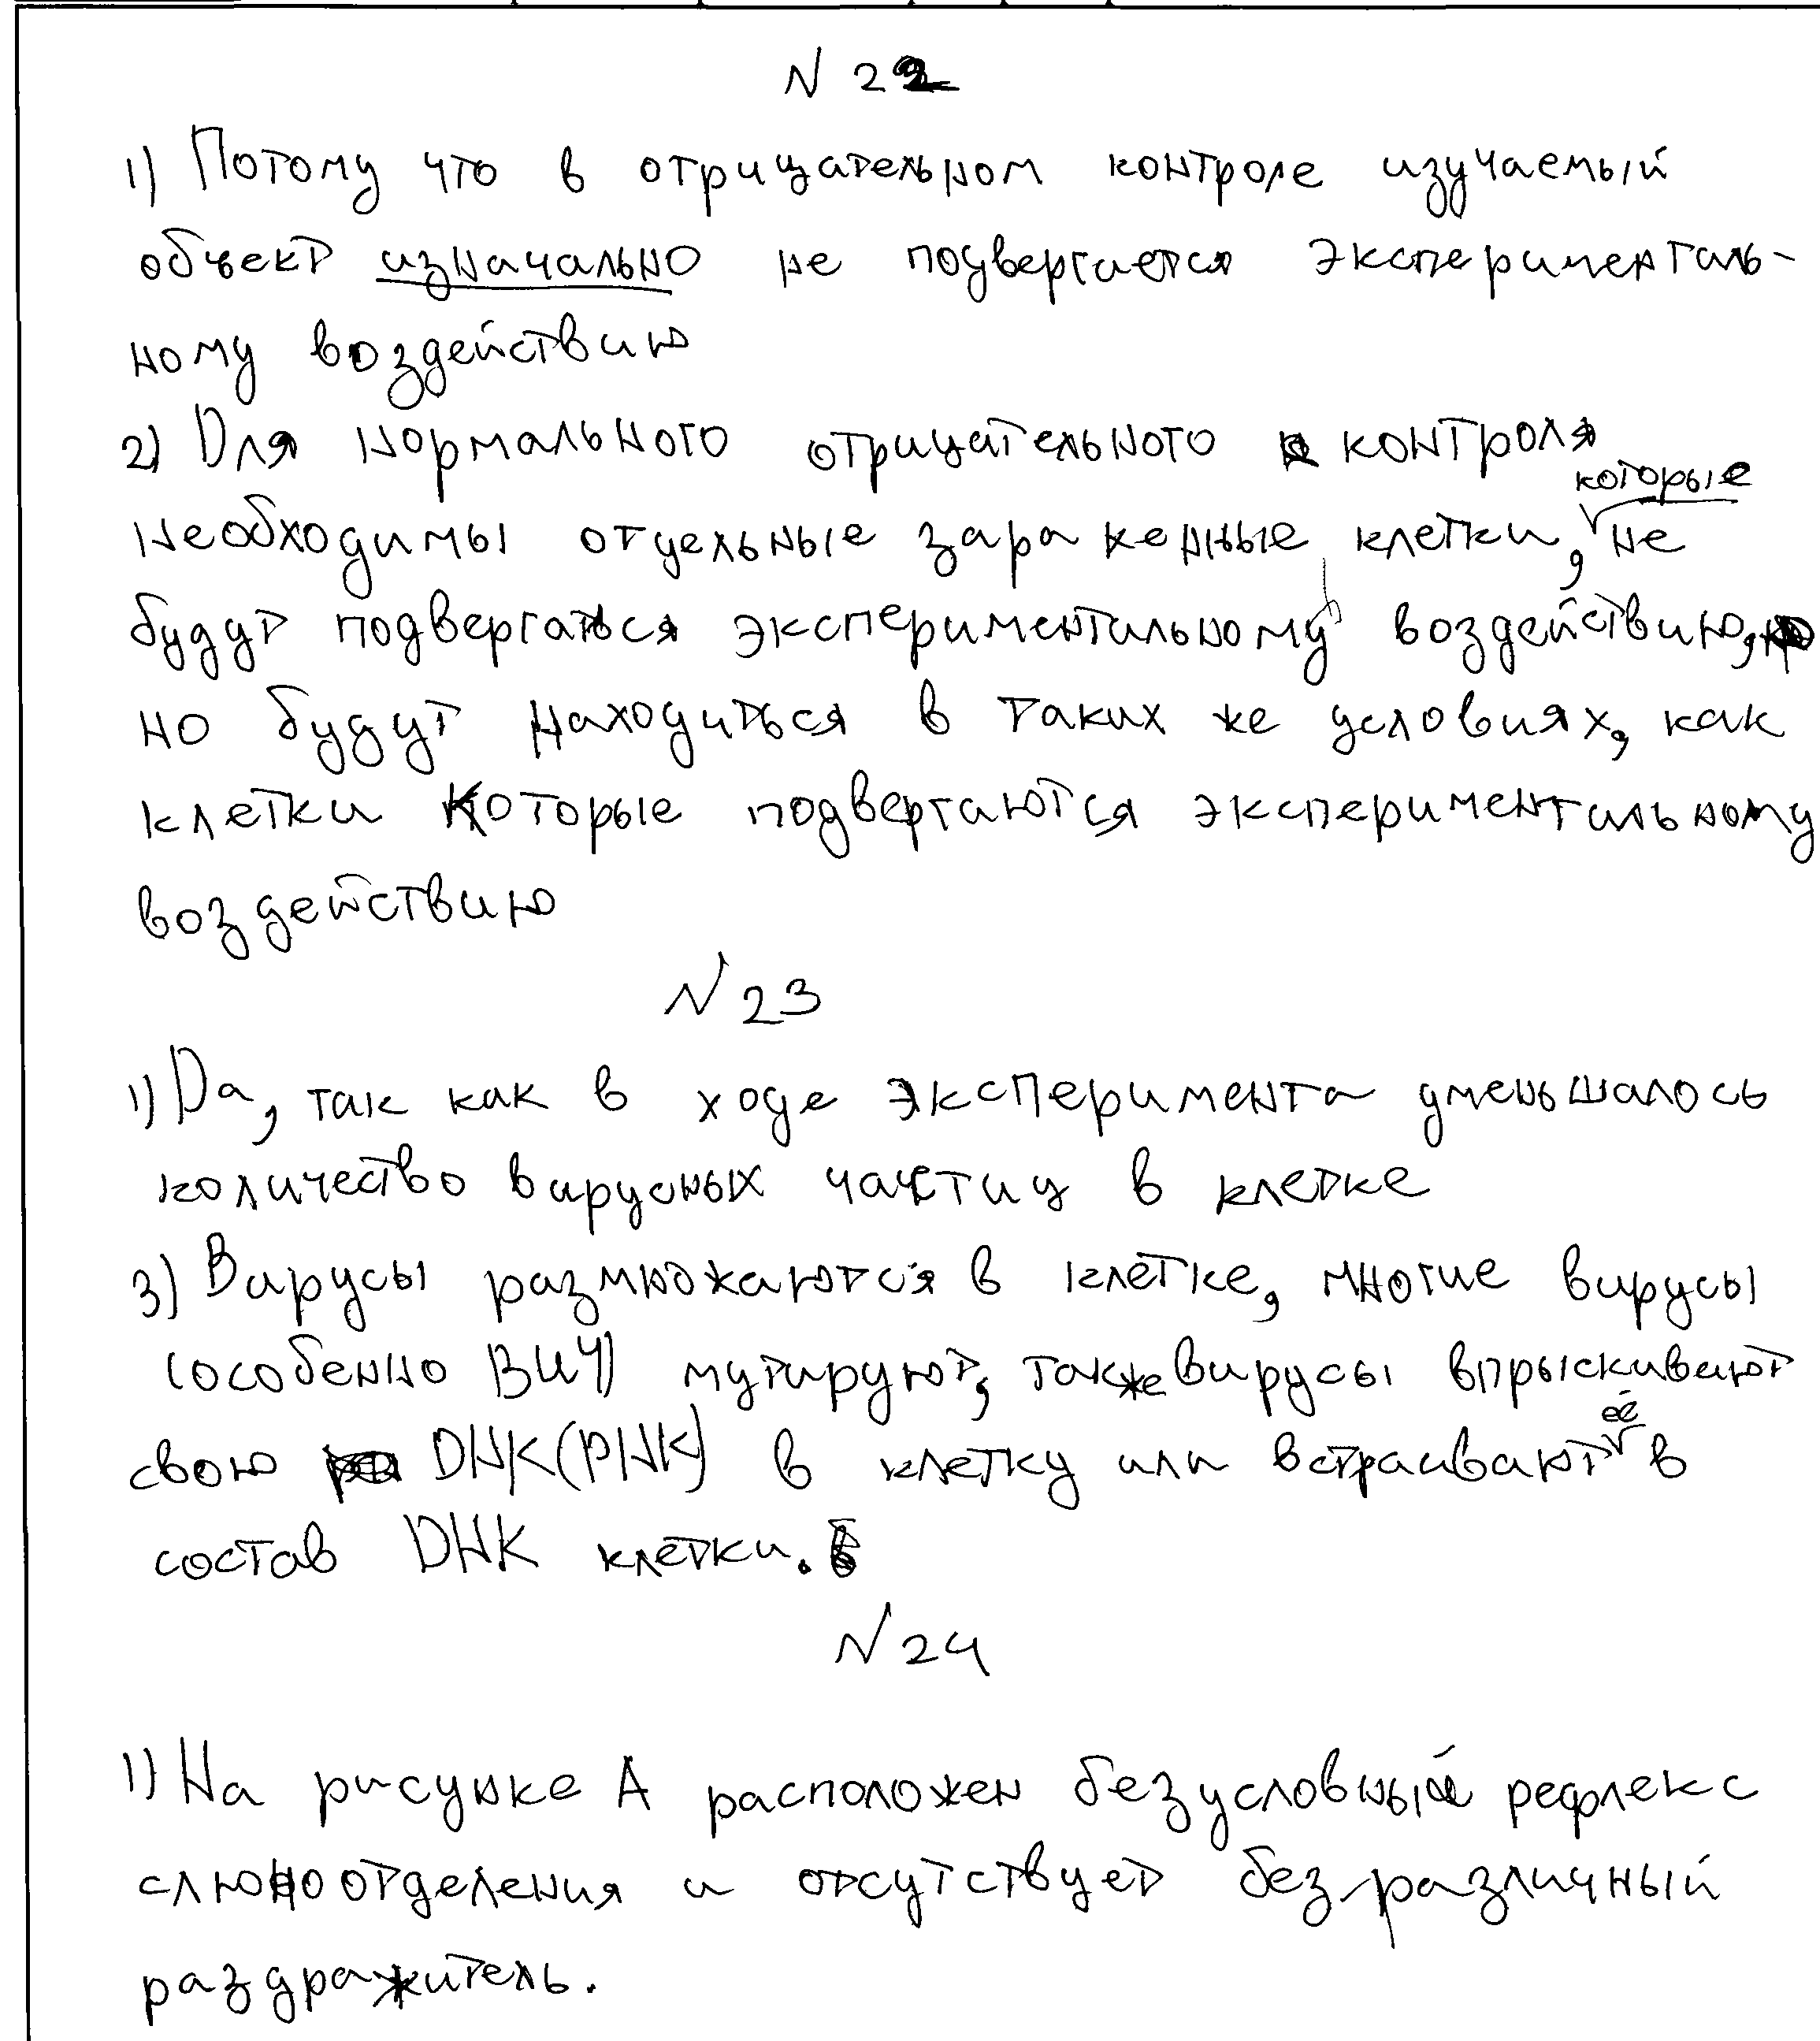 N 22
1) Потому что в отрицательном контроле изучаемый
объект изначально не подвергается эксперименталь-
ному воздействию
2) Для нормального отрицательного контроля
необходимы отдельные зараженные клетки, которые не
будут подвергаться экспериментальному воздействию,
но будут находиться в таких же условиях, как
клетки которые подвергаются экспериментальному
воздействию
N 23
1) Да, так как в ходе эксперимента уменьшалось
количество вирусных частиц в клетке
3) Вирусы размножаются в клетке, многие вирусы
(особенно ВИЧ) мутируют, также вирусы впрыскивают
свою ДНК(РНК) в клетку или встраивают её в
состав ДНК клетки.
N 24
1) На рисунке А расположен безусловный рефлекс
слюноотделения и отсутствует безразличный
раздражитель.